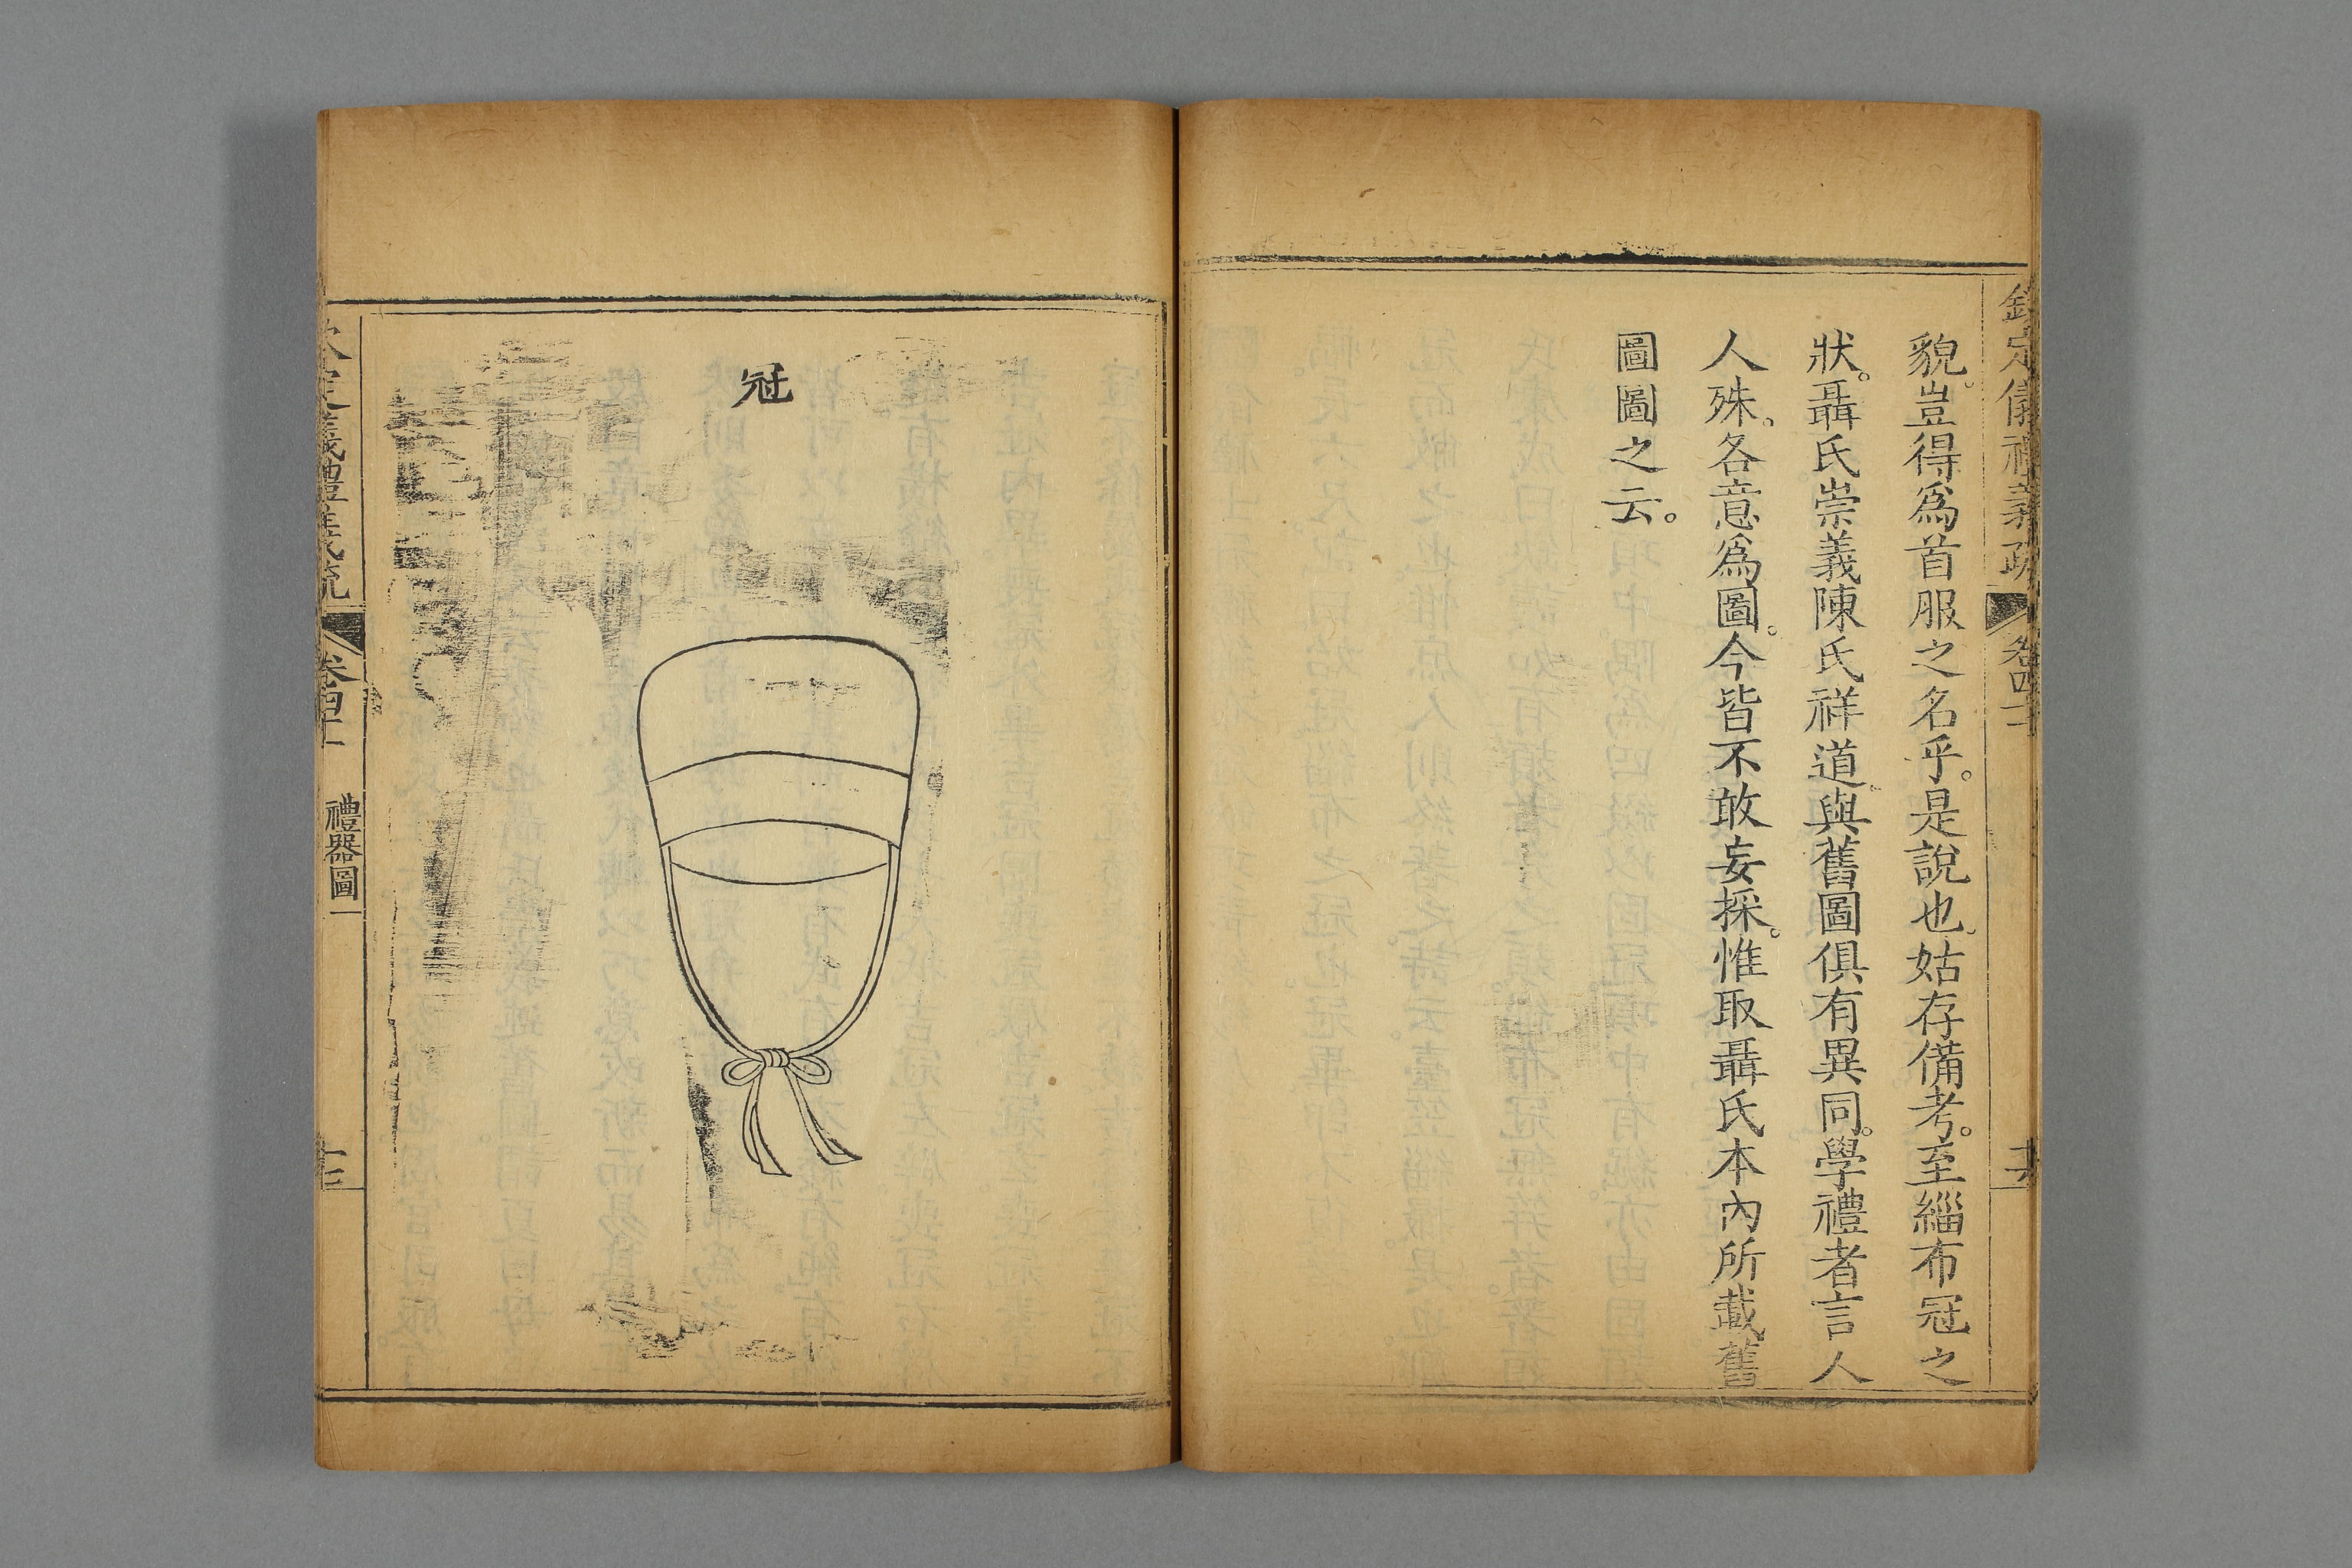 欽定儀禮義疏 卷四十一
貌。豈得爲首服之名乎。是說也。姑存備考。至緇布冠之
狀。聶氏崇義陳氏祥道。與舊圖俱有異同。學禮者言人
人殊。各意爲圖。今皆不敢妄採。惟取聶氏本內所載舊
圖圖之云。
冠
欽定儀禮義疏
卷四十一
禮器圖一